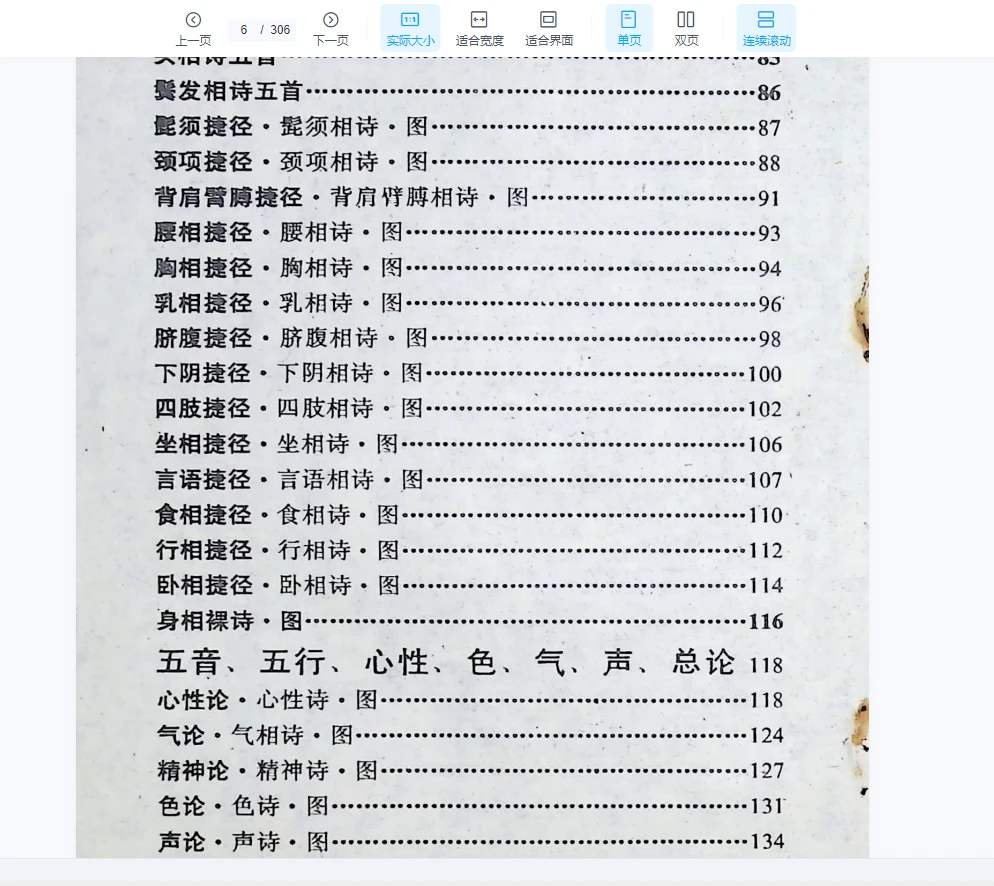 上一页 6 / 306 下一页 实际大小 适合宽度 适合界面 单页 双页 连续滚动
鬓发相诗五首……86
髭须捷径·髭须相诗·图……87
颈项捷径·颈项相诗·图……88
背肩臂膊捷径·背肩臂膊相诗·图……91
腰相捷径·腰相诗·图……93
胸相捷径·胸相诗·图……94
乳相捷径·乳相诗·图……96
脐腹捷径·脐腹相诗·图……98
下阴捷径·下阴相诗·图……100
四肢捷径·四肢相诗·图……102
坐相捷径·坐相诗·图……106
言语捷径·言语相诗·图……107
食相捷径·食相诗·图……110
行相捷径·行相诗·图……112
卧相捷径·卧相诗·图……114
身相裸诗·图……116
五音、五行、心性、色、气、声、总论 118
心性论·心性诗·图……118
气论·气相诗·图……124
精神论·精神诗·图……127
色论·色诗·图……131
声论·声诗·图……134